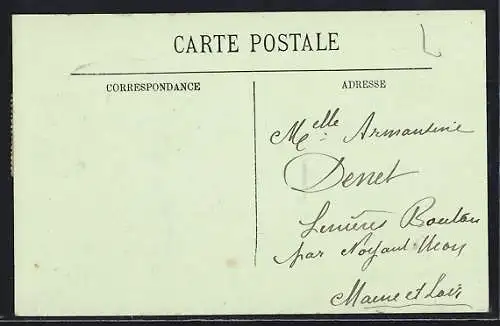 CARTE POSTALE
CORRESPONDANCE
ADRESSE
Melle Armantine
Denet
Lenières Bouton
par Noyant Meon
Maine et Loire